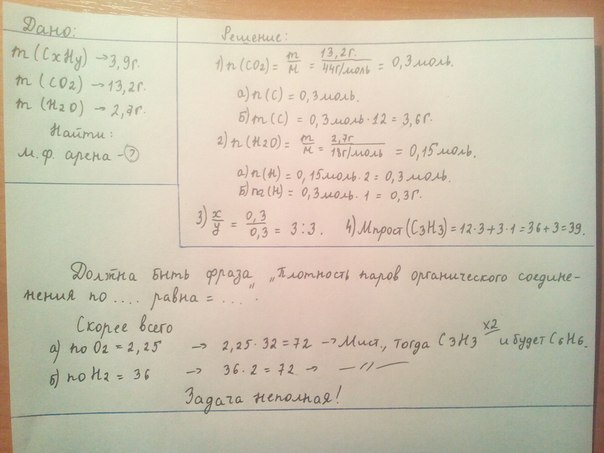 Дано:
m (CxHy) → 3,9г.
m (CO2) → 13,2г.
m (H2O) → 2,7г.
Найти:
м.ф. арена - ?
Решение:
1) n(CO2) = m/M = 13,2г./44г/моль = 0,3моль.
а) n(C) = 0,3моль.
б) m(C) = 0,3моль · 12 = 3,6г.
2) n(H2O) = m/M = 2,7г./18г/моль = 0,15моль.
а) n(H) = 0,15моль · 2 = 0,3моль.
б) m(H) = 0,3моль · 1 = 0,3г.
3) x/y = 0,3/0,3 = 3:3. 4) Mпрост(C3H3) = 12·3+3·1 = 36+3 = 39.
Должна быть фраза „Плотность паров органического соедине-
нения по .... равна = ....".
Скорее всего
а) по O2 = 2,25 → 2,25·32 = 72 → Mист., тогда C3H3 x2 и будет C6H6.
б) по H2 = 36 → 36·2 = 72 → —〃—
Задача неполная!